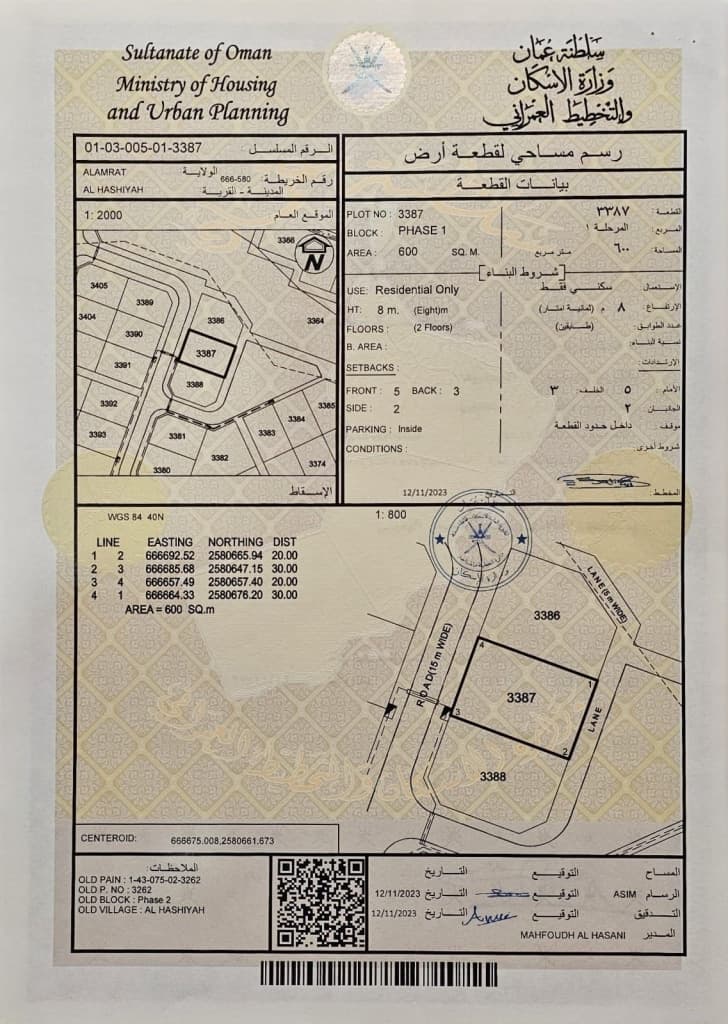 Sultanate of Oman
Ministry of Housing
and Urban Planning
سلطنة عمان
وزارة الإسكان
والتخطيط العمراني
01-03-005-01-3387 الرقم المسلسل :
ALAMRAT الولاية :
666-580 رقم الخريطة :
AL HASHIYAH المدينة - القرية :
1: 2000 الموقع العام
رسم مساحي لقطعة أرض
بيانات القطعة
PLOT NO : 3387
القطعة : ٣٣٨٧
BLOCK : PHASE 1
المربع : المرحلة ١
AREA : 600 SQ. M.
المساحة : ٦٠٠ متر مربع
شروط البناء
USE: Residential Only
الإستعمال : سكني فقط
HT: 8 m. (Eight)m
الإرتفاع : ٨ م (ثمانية امتار)
FLOORS : (2 Floors)
عدد الطوابق : (طابقين)
B. AREA :
نسبة البناء :
SETBACKS :
الإرتدادات :
FRONT : 5 BACK : 3
الأمام : ٥ الخلف : ٣
SIDE : 2
الجانبان : ٢
PARKING : Inside
موقف : داخل حدود القطعة
CONDITIONS :
شروط أخرى :
12/11/2023 التاريخ :
المخطط :
3366
N
3405
3389
3404
3386
3364
3390
3387
3391
3388
3392
3385
3384
3393
3381
3383
3382
3374
3380
الإسقاط
WGS 84 40N
1: 800
LINE EASTING NORTHING DIST
1 2 666692.52 2580665.94 20.00
2 3 666685.68 2580647.15 30.00
3 4 666657.49 2580657.40 20.00
4 1 666664.33 2580676.20 30.00
AREA = 600 SQ.m
LANE(5 m WIDE)
3386
ROAD(15 m WIDE)
4
1
3387
3
2
LANE
3388
CENTEROID: 666675.008,2580661.673
الملاحظات :
OLD PAIN : 1-43-075-02-3262
OLD P. NO : 3262
OLD BLOCK : Phase 2
OLD VILLAGE : AL HASHIYAH
المساح التوقيع التاريخ
الرسام ASIM التوقيع التاريخ 12/11/2023
التدقيق التوقيع التاريخ 12/11/2023
المدير MAHFOUDH AL HASANI